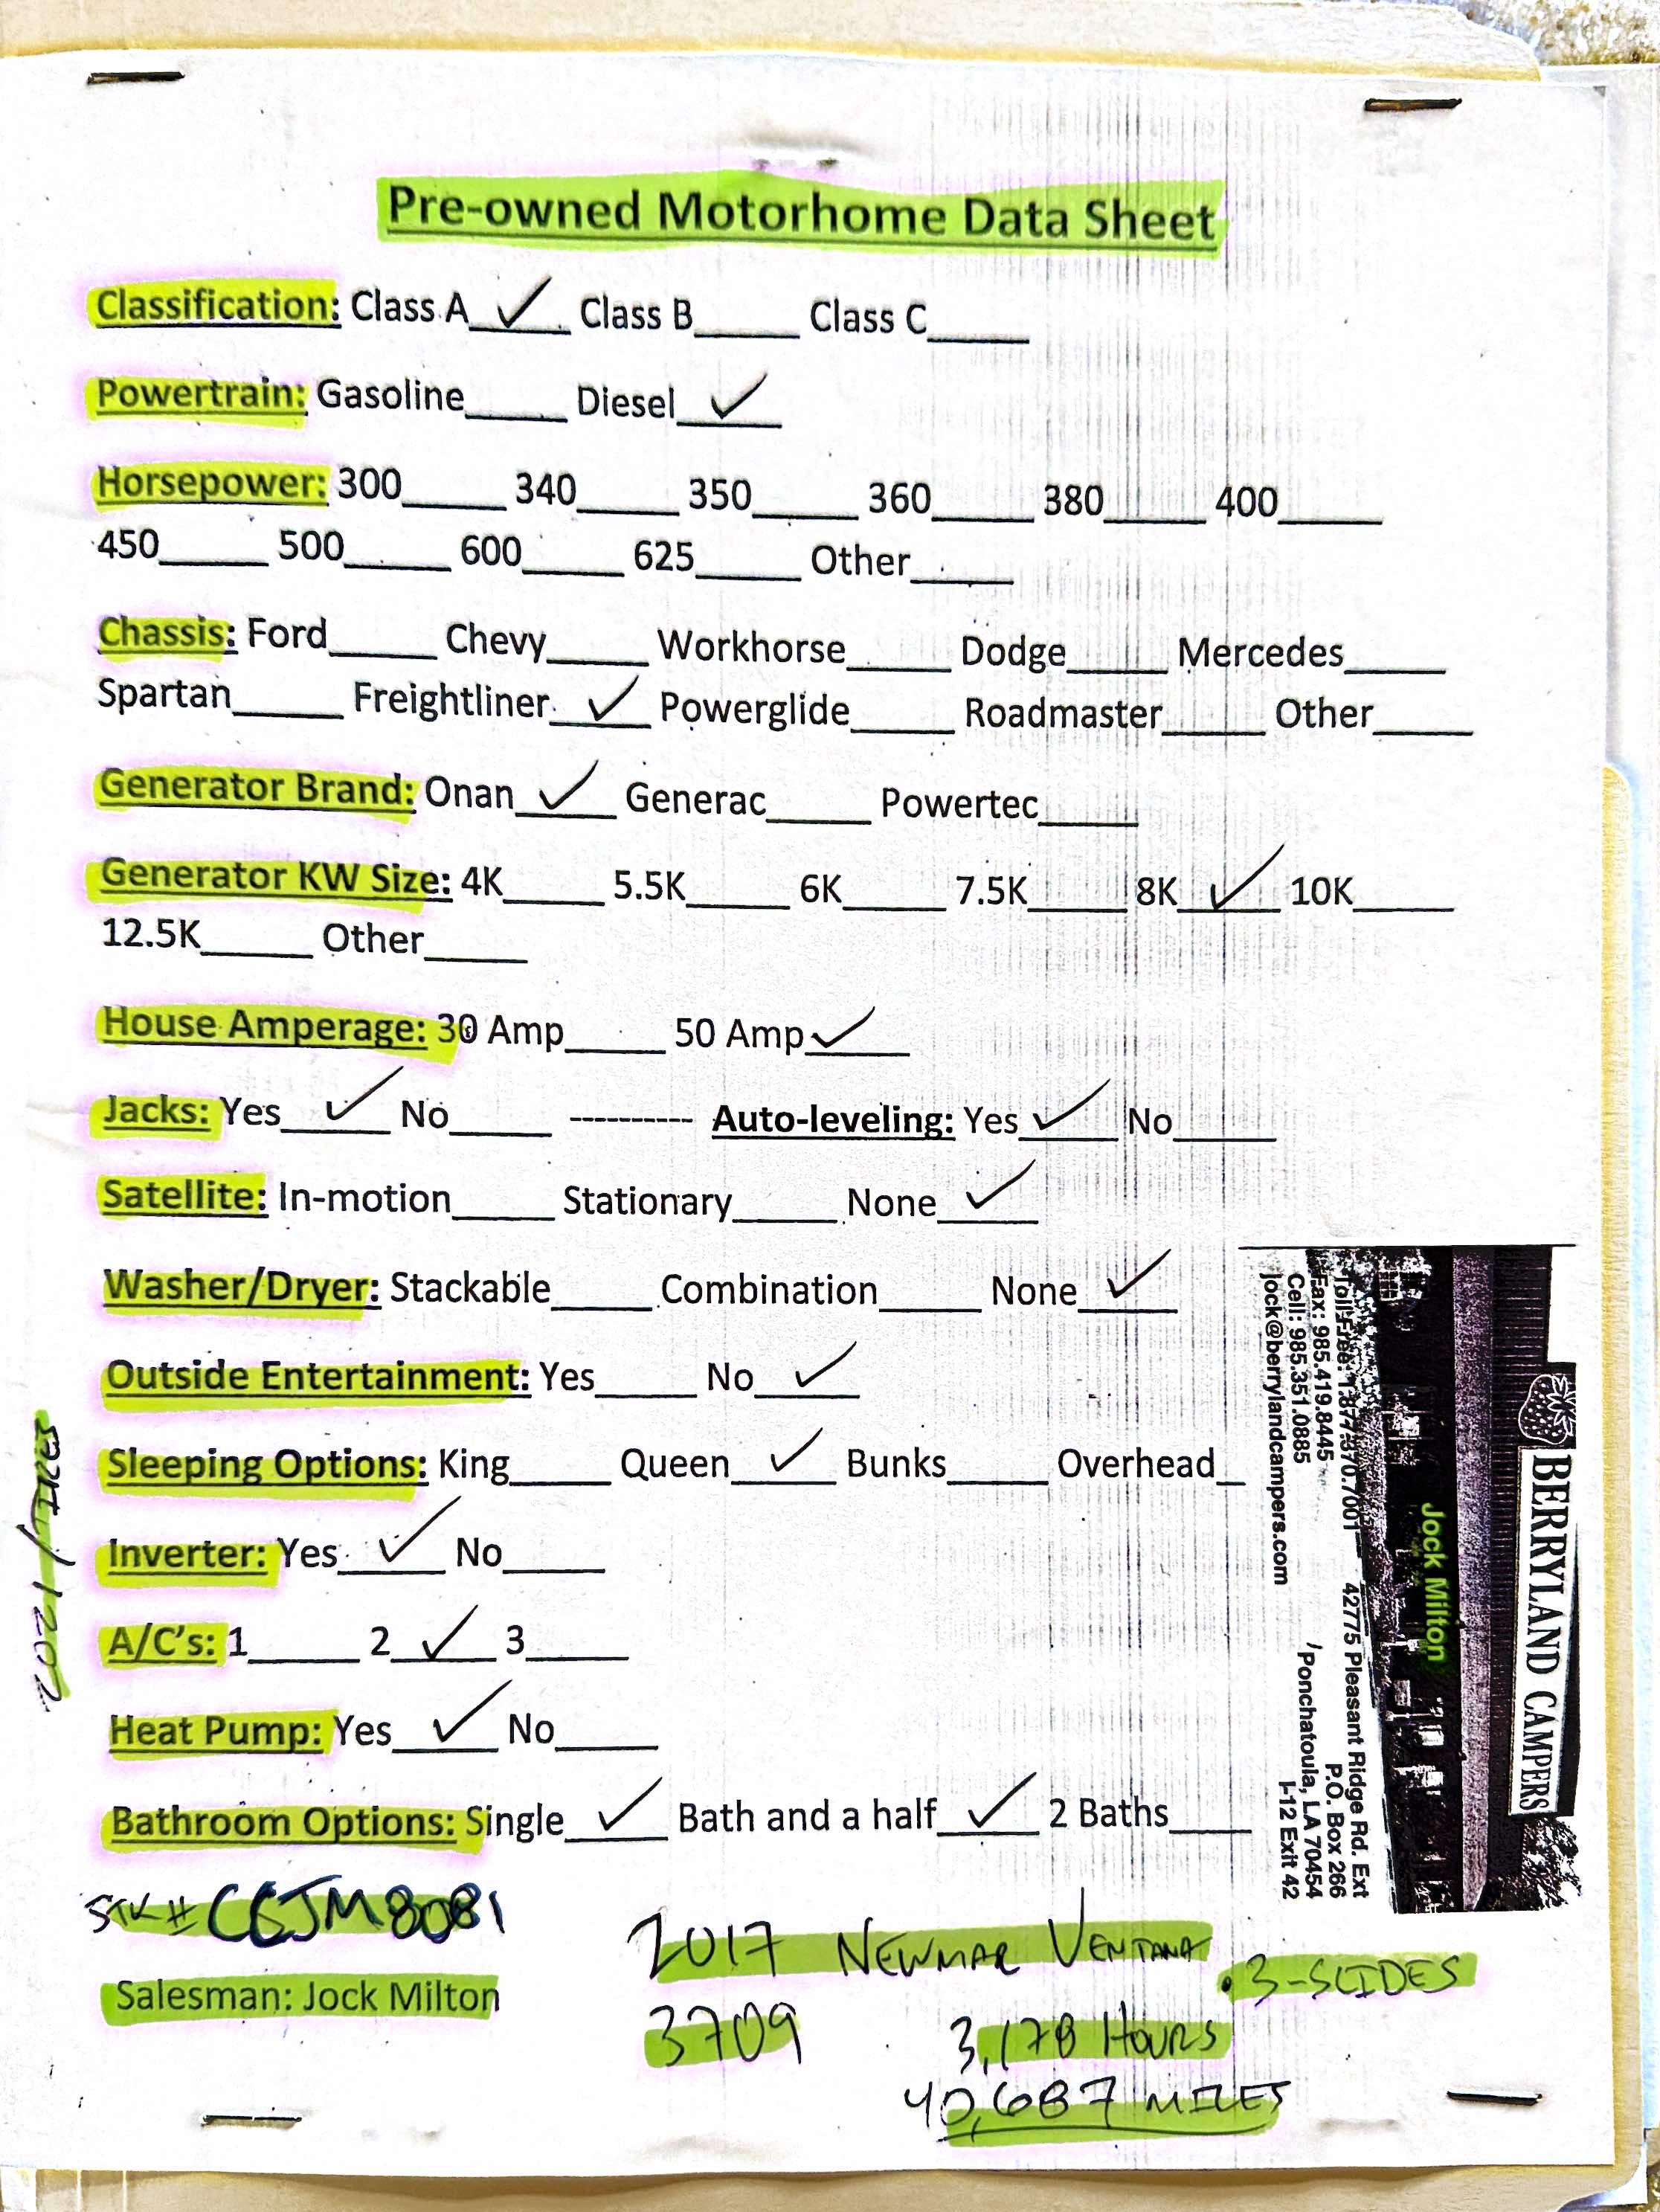 Pre-owned Motorhome Data Sheet
Classification: Class A ✓ Class B_____ Class C_____
Powertrain: Gasoline_____ Diesel ✓
Horsepower: 300_____ 340_____ 350_____ 360_____ 380_____ 400_____
450_____ 500_____ 600_____ 625_____ Other_____
Chassis: Ford_____ Chevy_____ Workhorse_____ Dodge_____ Mercedes_____
Spartan_____ Freightliner ✓ Powerglide_____ Roadmaster_____ Other_____
Generator Brand: Onan ✓ Generac_____ Powertec_____
Generator KW Size: 4K_____ 5.5K_____ 6K_____ 7.5K_____ 8K ✓ 10K_____
12.5K_____ Other_____
House Amperage: 30 Amp_____ 50 Amp ✓
Jacks: Yes ✓ No_____ ---------- Auto-leveling: Yes ✓ No_____
Satellite: In-motion_____ Stationary_____ None ✓
Washer/Dryer: Stackable_____ Combination_____ None ✓
Outside Entertainment: Yes_____ No ✓
Sleeping Options: King_____ Queen ✓ Bunks_____ Overhead_
Inverter: Yes ✓ No_____
A/C's: 1_____ 2 ✓ 3_____
Heat Pump: Yes ✓ No_____
Bathroom Options: Single ✓ Bath and a half ✓ 2 Baths_____
2021/TIRES
BERRYLAND CAMPERS
Jock Milton
Toll Free: 1.877.370.7001 42775 Pleasant Ridge Rd. Ext
Fax: 985.419.8445 P.O. Box 266
Cell: 985.351.0885 Ponchatoula, LA 70454
jock@berrylandcampers.com I-12 Exit 42
STK# CCJM8081
2017 NEWMAR VENTANA
• 3-SLIDES
Salesman: Jock Milton
3709 3,178 HOURS
40,687 MILES